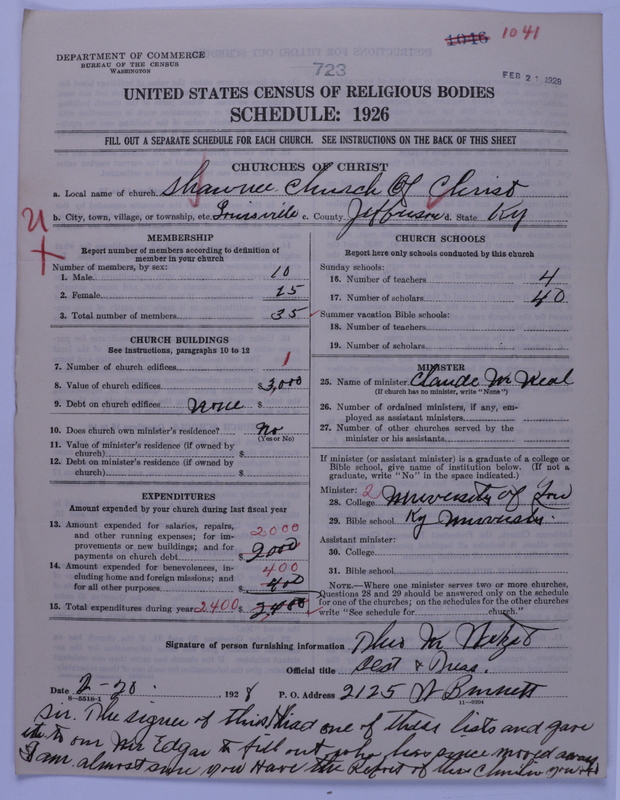 1046 1041
DEPARTMENT OF COMMERCE
BUREAU OF THE CENSUS
WASHINGTON
723
FEB 21 1928
UNITED STATES CENSUS OF RELIGIOUS BODIES
SCHEDULE: 1926
FILL OUT A SEPARATE SCHEDULE FOR EACH CHURCH. SEE INSTRUCTIONS ON THE BACK OF THIS SHEET
CHURCHES OF CHRIST
a. Local name of church Shawnee Church Of Christ
b. City, town, village, or township, etc. Louisville c. County Jefferson d. State Ky
MEMBERSHIP
Report number of members according to definition of
member in your church
Number of members, by sex:
1. Male 10
2. Female 25
3. Total number of members 35
CHURCH BUILDINGS
See instructions, paragraphs 10 to 12
7. Number of church edifices 1
8. Value of church edifices $3,000
9. Debt on church edifices none $
10. Does church own minister's residence? No
(Yes or No)
11. Value of minister's residence (if owned by
church) $
12. Debt on minister's residence (if owned by
church) $
EXPENDITURES
Amount expended by your church during last fiscal year
13. Amount expended for salaries, repairs,
and other running expenses; for im-
provements or new buildings; and for
payments on church debt 2000 $ 2000
14. Amount expended for benevolences, in-
cluding home and foreign missions; and
for all other purposes 400 $ 400
15. Total expenditures during year 2400 $ 2400
CHURCH SCHOOLS
Report here only schools conducted by this church
Sunday schools:
16. Number of teachers 4
17. Number of scholars 40
Summer vacation Bible schools:
18. Number of teachers
19. Number of scholars
MINISTER
25. Name of minister Claude McNeal
(If church has no minister, write "None")
26. Number of ordained ministers, if any, em-
ployed as assistant ministers
27. Number of other churches served by the
minister or his assistants
If minister (or assistant minister) is a graduate of a college or
Bible school, give name of institution below. (If not a
graduate, write "No" in the space indicated.)
Minister: 2
28. College University of Lou
29. Bible school Ky University
Assistant minister:
30. College
31. Bible school
NOTE.—Where one minister serves two or more churches,
Questions 28 and 29 should be answered only on the schedule
for one of the churches; on the schedules for the other churches
write "See schedule for church."
Signature of person furnishing information Theo M.
Official title Sect & Treas.
Date 2-20 1928 P. O. Address 2125 W Burnett
8—5518-1 11—9204
Sir. The signer of this had one of these lists and gave
it to our Mr Edgar to fill out who has since moved away
I am almost sure you Have the Report of